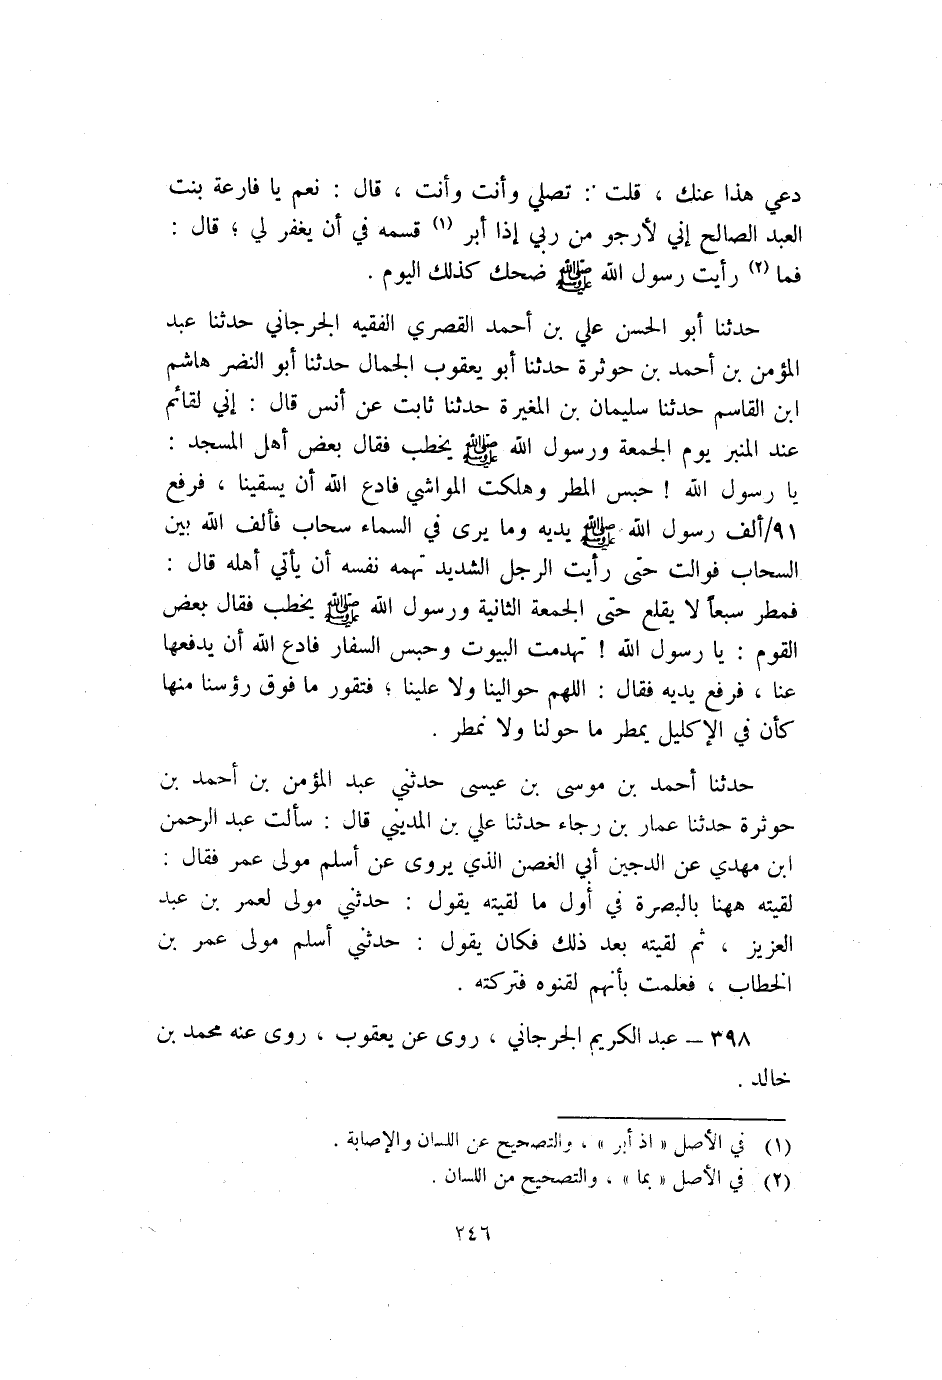 دعي هذا عنك ، قلت : تصلي وأنت وأنت ، قال : نعم يا فارعة بنت
العبد الصالح إني لأرجو من ربي إذا أبر (١) قسمه في أن يغفر لي ؛ قال :
فما (٢) رأيت رسول الله ﷺ ضحك كذلك اليوم .
حدثنا أبو الحسن علي بن أحمد القصري الفقيه الجرجاني حدثنا عبد
المؤمن بن أحمد بن حوثرة حدثنا أبو يعقوب الجمال حدثنا أبو النضر هاشم
ابن القاسم حدثنا سليمان بن المغيرة حدثنا ثابت عن أنس قال : إني لقائم
عند المنبر يوم الجمعة ورسول الله ﷺ يخطب فقال بعض أهل المسجد :
يا رسول الله ! حبس المطر وهلكت المواشي فادع الله أن يسقينا ، فرفع
٩١/ألف رسول الله ﷺ يديه وما يرى في السماء سحاب فألف الله بين
السحاب فوالت حتى رأيت الرجل الشديد تهمه نفسه أن يأتي أهله قال :
فمطر سبعاً لا يقلع حتى الجمعة الثانية ورسول الله ﷺ يخطب فقال بعض
القوم : يا رسول الله ! تهدمت البيوت وحبس السفار فادع الله أن يدفعها
عنا ، فرفع يديه فقال : اللهم حوالينا ولا علينا ؛ فتقور ما فوق رؤسنا منها
كأن في الإكليل يمطر ما حولنا ولا نمطر .
حدثنا أحمد بن موسى بن عيسى حدثني عبد المؤمن بن أحمد بن
حوثرة حدثنا عمار بن رجاء حدثنا علي بن المديني قال : سألت عبد الرحمن
ابن مهدي عن الدجين أبي الغصن الذي يروى عن أسلم مولى عمر فقال :
لقيته ههنا بالبصرة في أول ما لقيته يقول : حدثني مولى لعمر بن عبد
العزيز ، ثم لقيته بعد ذلك فكان يقول : حدثني أسلم مولى عمر بن
الخطاب ، فعلمت بأنهم لقنوه فتركته .
٣٩٨ – عبد الكريم الجرجاني ، روى عن يعقوب ، روى عنه محمد بن
خالد .
(١) في الأصل « اذ أبر » ، والتصحيح عن اللسان والإصابة .
(٢) في الأصل « بما » ، والتصحيح من اللسان .
٢٤٦